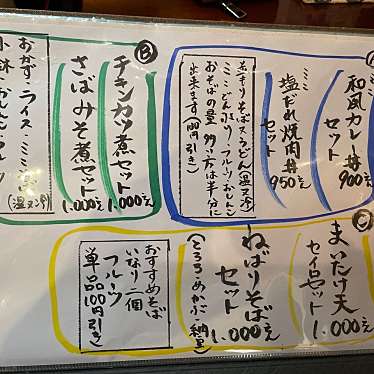 Ⓐ
ミニ
和風カレー丼
セット
900え
ミニ
塩だれ焼肉丼
セット
950え
若キリそばスうどん(温又冷)
ミニどんぶり・フルーツ・おしんこ
おそばの量 多い方は半分に
出来ます (100円引き)
Ⓑ
チキンカツ煮
セット
1.000え
さばみそ煮セット
1.000え
おかず・ライス・ミニ
(温又冷)
小鉢・おしんこ・フルーツ
Ⓒ
まいたけ天
セイロセット
1.000え
ねばりそば
セット
1.000え
(とろろ・めかぶ・納豆)
おすすめそば
いなり二個
フルーツ
単品100円引き